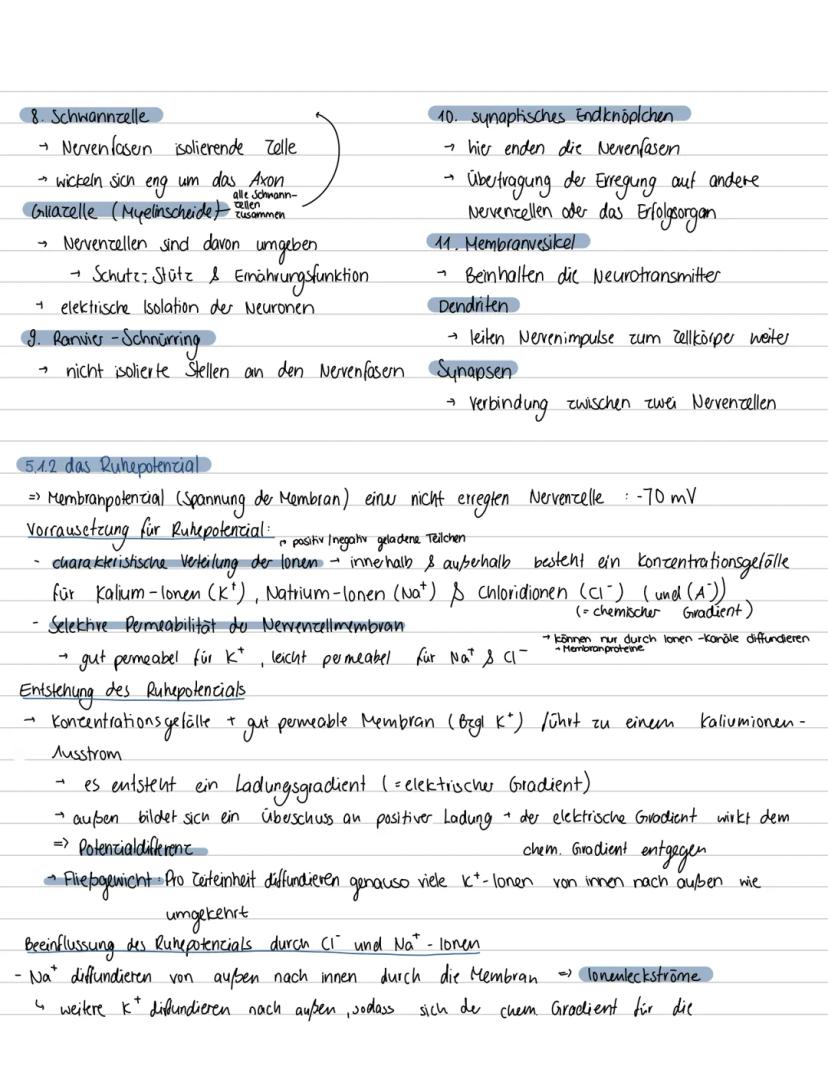 8. Schwannzelle
→ Nervenfasern isolierende Zelle
→ wickeln sich eng um das Axon
Gliazelle (Myelinscheide) → alle Schwann-
zellen
zusammen
→ Nervenzellen sind davon umgeben
→ Schutz-, Stütz & Ernährungsfunktion
→ elektrische Isolation der Neuronen
9. Ranvier-Schnürring
→ nicht isolierte Stellen an den Nervenfasern
10. synaptisches Endknöplchen
→ hier enden die Nervenfasern
→ Übertragung der Erregung auf andere
Nervenzellen oder das Erfolgsorgan
11. Membranvesikel
→ Beinhalten die Neurotransmitter
Dendriten
→ leiten Nervenimpulse zum Zellkörper weiter
Synapsen
→ Verbindung zwischen zwei Nervenzellen
5.1.2 das Ruhepotenzial
=> Membranpotenzial (Spannung der Membran) einer nicht erregten Nervenzelle : -70 mV
Vorrausetzung für Ruhepotenzial:
→ positiv/negativ geladene Teilchen
- charakteristische Verteilung der Ionen → innerhalb & außerhalb besteht ein Konzentrationsgefälle
für Kalium-Ionen (K⁺), Natrium-Ionen (Na⁺) & Chloridionen (Cl⁻) (und (A⁻))
(= chemischer Gradient)
- Selektive Permeabilität der Nervenzellmembran
→ können nur durch Ionen-Kanäle diffundieren
→ Membranproteine
→ gut permeabel für K⁺, leicht permeabel für Na⁺ & Cl⁻
Entstehung des Ruhepotenzials
→ Konzentrationsgefälle + gut permeable Membran (Bzgl K⁺) führt zu einem Kaliumionen-
Ausstrom
→ es entsteht ein Ladungsgradient (= elektrischer Gradient)
→ außen bildet sich ein Überschuss an positiver Ladung → der elektrische Gradient wirkt dem
chem. Gradient entgegen
=> Potenzialdifferenz
→ Fließgewicht: Pro Zeiteinheit diffundieren genauso viele K⁺-Ionen von innen nach außen wie
umgekehrt
Beeinflussung des Ruhepotenzials durch Cl⁻ und Na⁺-Ionen
- Na⁺ diffundieren von außen nach innen durch die Membran => Ionenleckströme
↳ weitere K⁺ diffundieren nach außen, sodass sich der chem Gradient für die